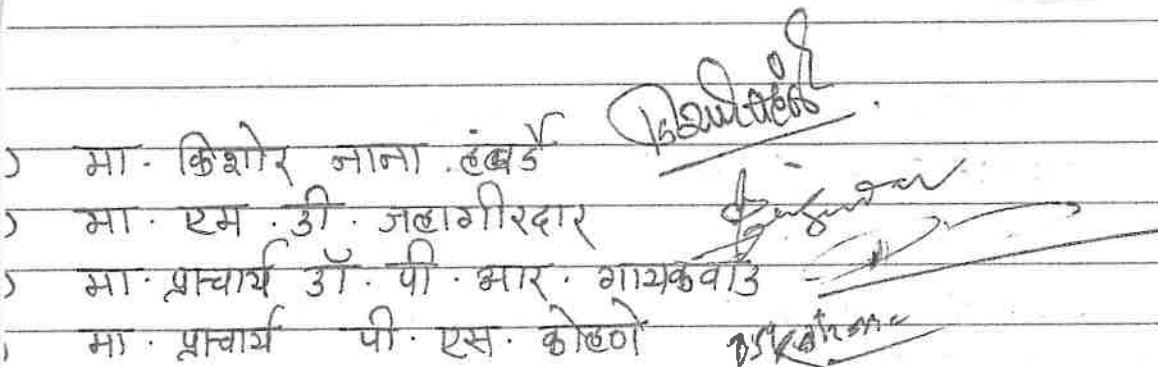 ) मा. किशोर नाना हंबर्डे
) मा. एम. डी. जहागीरदार
) मा. प्राचार्य डॉ. पी. आर. गायकवाड
) मा. प्राचार्य पी. एस. कोल्हणे